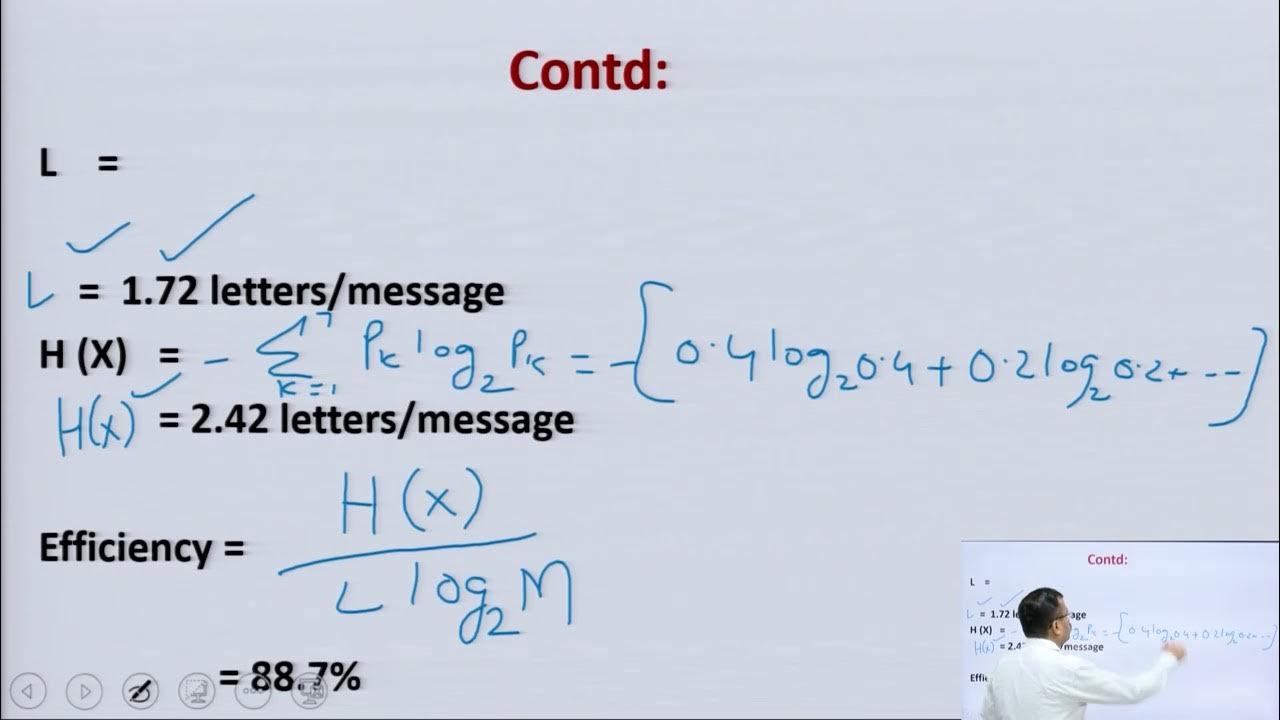 Contd:
L =
L = 1.72 letters/message
H (X) = - ∑ 7 K=1 PK log2 PK = -[0.4 log2 0.4 + 0.2 log2 0.2 + ---]
H(x) = 2.42 letters/message
Efficiency = H(x) / L log2 M
= 88.7%
Contd:
L =
L = 1.72 le age
H (X) = g2 PK = -[0.4 log2 0.4 + 0.2 log2 0.2+ ---]
H(x) = 2.4 /message
Effi